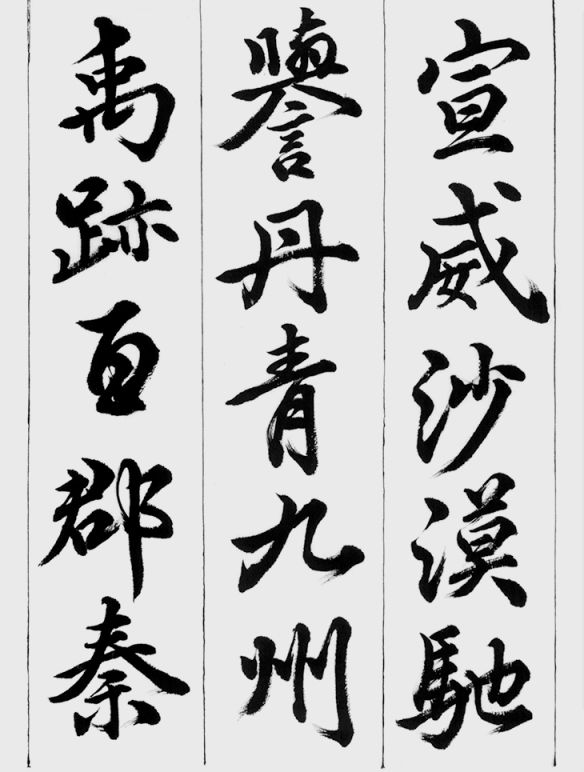 宣威沙漠馳
譽丹青九州
禹跡百郡秦